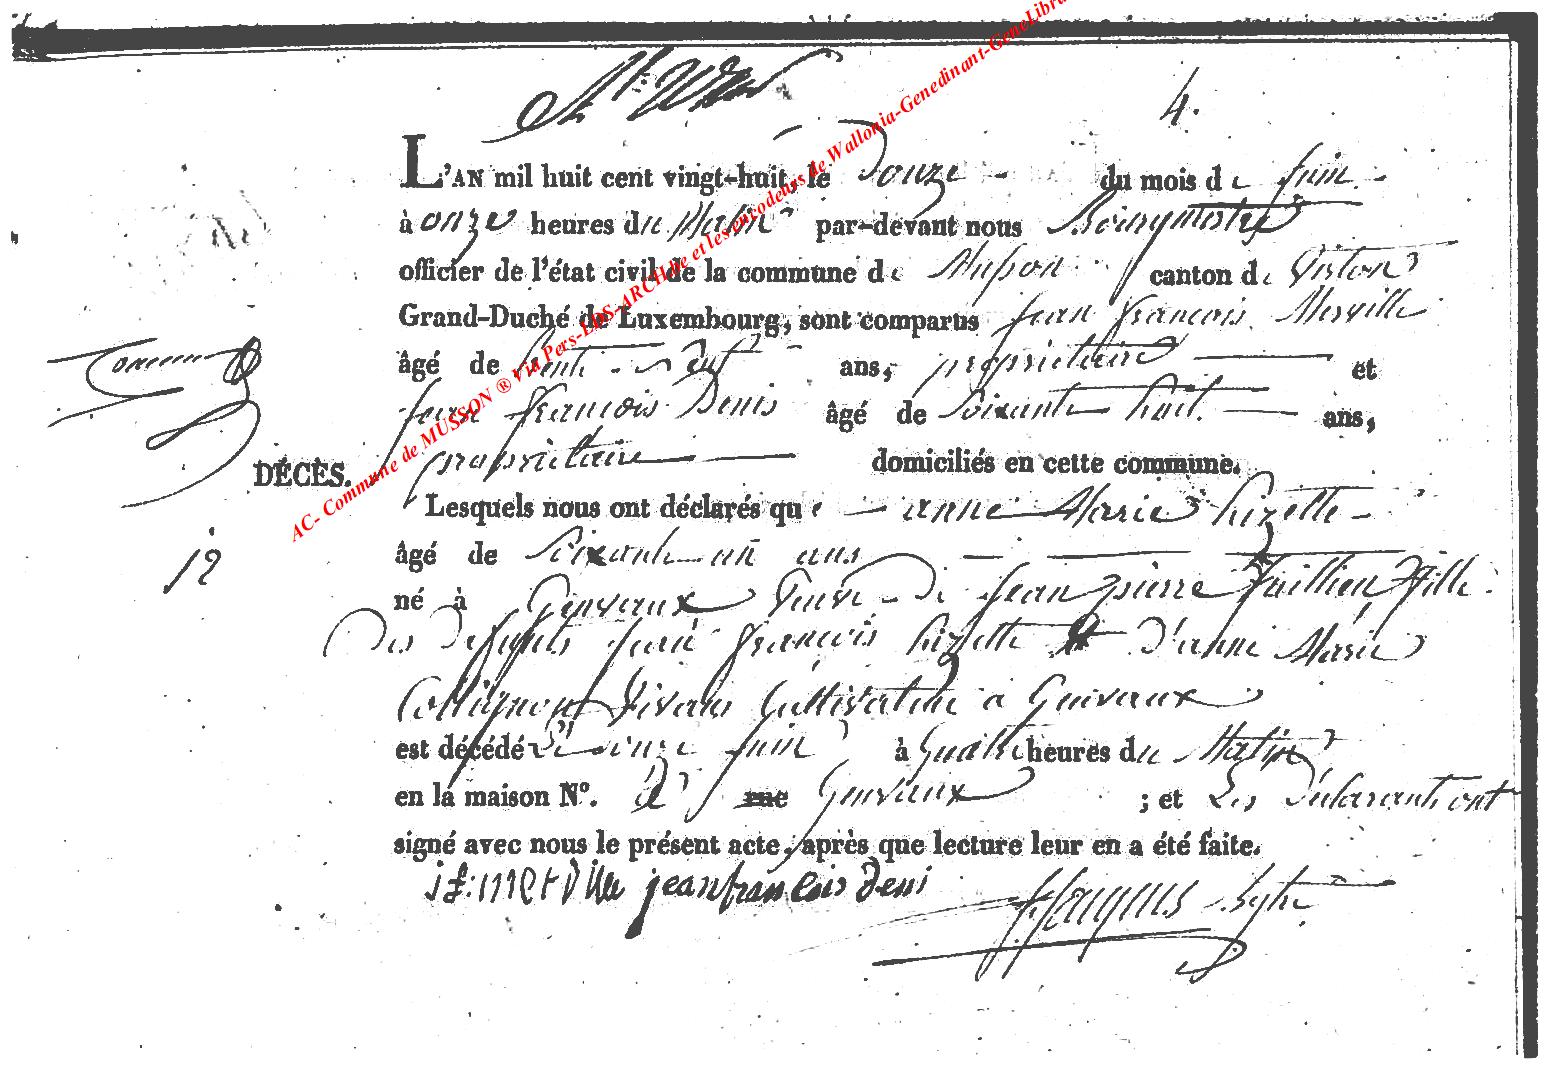 4.
L'AN mil huit cent vingt-huit, le Douze du mois de Juin
à onze heures du Matin par-devant nous Bourgmestre
officier de l'état civil de la commune de Musson canton de Virton
Grand-Duché de Luxembourg, sont comparus Jean François Merville
âgé de trente neuf ans, propriétaire et
Jean François Denis âgé de Soixante huit ans,
propriétaire domiciliés en cette commune.
DÉCÈS.
Lesquels nous ont déclarés que anne Marie Lizette
âgé de Soixante un ans
12
né à Genvaux Veuve De Jean pierre fille
Des Defunts Jean François Lizette et d'anne Marie
Collignon Vivans Cultivateur a Genvaux
est décédé Le Juin à Quatre heures du Matin
en la maison N°. rue Genvaux ; et Les Déclarants ont
signé avec nous le présent acte, après que lecture leur en a été faite.
jean francois deni
AC- Commune de MUSSON ® Via Pers-EDS-ARCHive et les encodeurs de Wallonia-Genedinant-GeneLibra